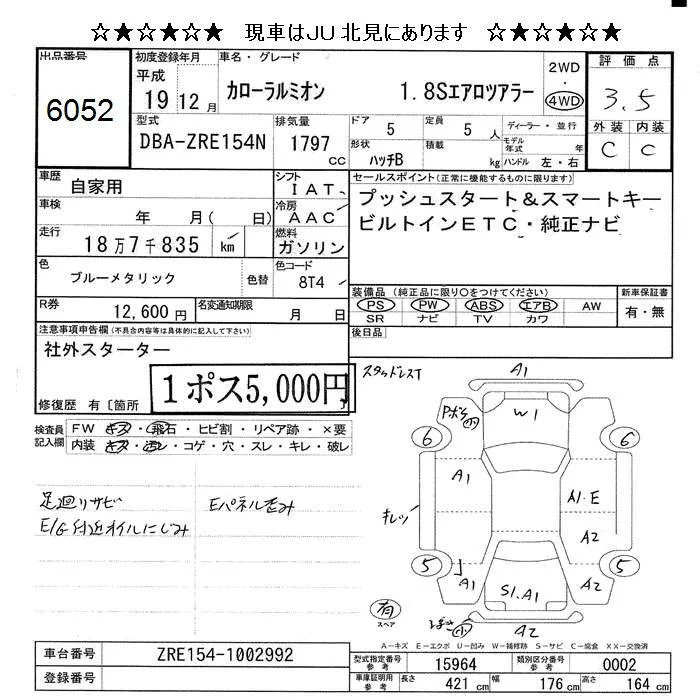 ☆★☆★☆★☆ 現車はJU北見にあります ☆★☆★☆★☆
出品番号 初度登録年月 車名・グレード 2WD 評価点
6052 平成 19 12月 カローラルミオン 1.8Sエアロツアラー 4WD 3.5
型式 排気量 ドア 5 定員 5人 ディーラー・並行 外装 内装
DBA-ZRE154N 1797 CC 形状 ハッチB 積載 kg モデル年式 年 ハンドル 左・右 C C
車歴 自家用 シフト IAT、 セールスポイント(正常に機能するものに限ります)
車検 年 月( 日) 冷房 AAC プッシュスタート&スマートキー
走行 18万7千835 km 燃料 ガソリン ビルトインETC・純正ナビ
色 ブルーメタリック 色替 色コード 8T4
装備品(純正品に限り○をつけてください) 新車保証書
R券 12,600円 名変通知期限 月 日 PS PW ABS エアB AW 有・無
SR ナビ TV カワ
注意事項申告欄(不具合内容等は具体的に記入して下さい) 後日品
社外スターター
1ポス5,000円
修復歴 有〔箇所
検査員記入欄 FW キズ・飛石・ヒビ割・リペア跡・×要
内装 キズ・汚レ・コゲ・穴・スレ・キレ・破レ
足廻りサビ Eパネル歪み
E/G付近オイルにじみ
スタッドレスT A1
W1
6 6
A1 A1.E
キレツ A2
5 5
A1 S1.A1 A2
有 スペア
A2
A-キズ E-エクボ U-凹み W-補修跡 S-サビ C-腐食 XX-交換済
車台番号 ZRE154-1002992 型式指定番号参考 15964 類別区分番号参考 0002
登録番号 車庫証明用参考 長さ 421cm 幅 176cm 高さ 164cm